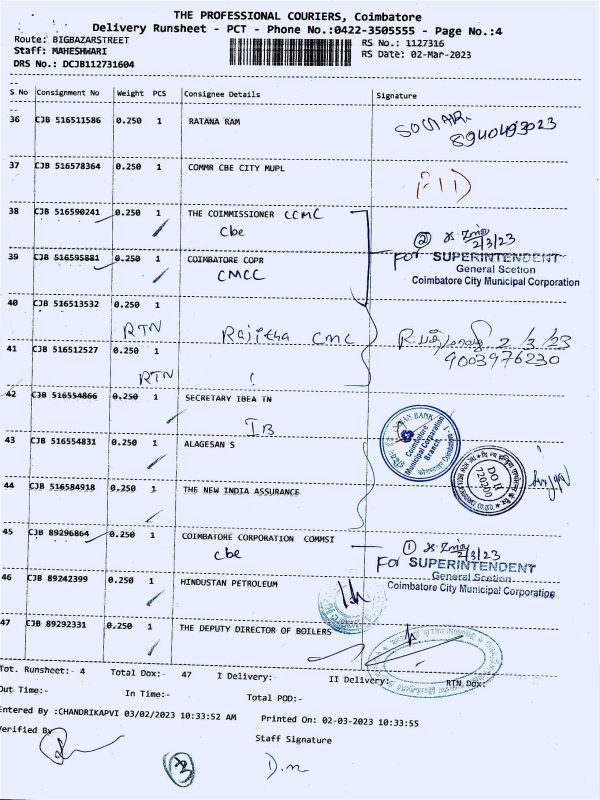 THE PROFESSIONAL COURIERS, Coimbatore
Delivery Runsheet - PCT - Phone No.:0422-3505555 - Page No.:4
Route: BIGBAZARSTREET
RS No.: 1127316
Staff: MAHESHWARI
RS Date: 02-Mar-2023
DRS No.: DCJB112731604
S No Consignment No Weight PCS Consignee Details Signature
36 CJB 516511586 0.250 1 RATANA RAM
8940493023
37 CJB 516578364 0.250 1 COMMR CBE CITY MUPL
38 CJB 516590241 0.250 1 THE COIMMISSIONER CCMC
Cbe
2 2/3/23
39 CJB 516595881 0.250 1 COIMBATORE COPR
CMCC
For SUPERINTENDENT
General Scetion
Coimbatore City Municipal Corporation
40 CJB 516513532 0.250 1
RTN Rajitha CMC
R. 2/3/23
9003976230
41 CJB 516512527 0.250 1
RTN
42 CJB 516554866 0.250 1 SECRETARY IBEA TN
IB
43 CJB 516554831 0.250 1 ALAGESAN S
BANK
Coimbatore
Municipal Corporation
Branch
DO II
720200
44 CJB 516584918 0.250 1 THE NEW INDIA ASSURANCE
45 CJB 89296864 0.250 1 COIMBATORE CORPORATION COMMSI
Cbe
1 2/3/23
For SUPERINTENDENT
General Scetion
Coimbatore City Municipal Corporation
46 CJB 89242399 0.250 1 HINDUSTAN PETROLEUM
47 CJB 89292331 0.250 1 THE DEPUTY DIRECTOR OF BOILERS
Tot. Runsheet:- 4 Total Dox:- 47 I Delivery:- II Delivery:- RTN Dox:
Out Time:- In Time:- Total POD:-
Entered By :CHANDRIKAPVI 03/02/2023 10:33:52 AM Printed On: 02-03-2023 10:33:55
Verified By
Staff Signature